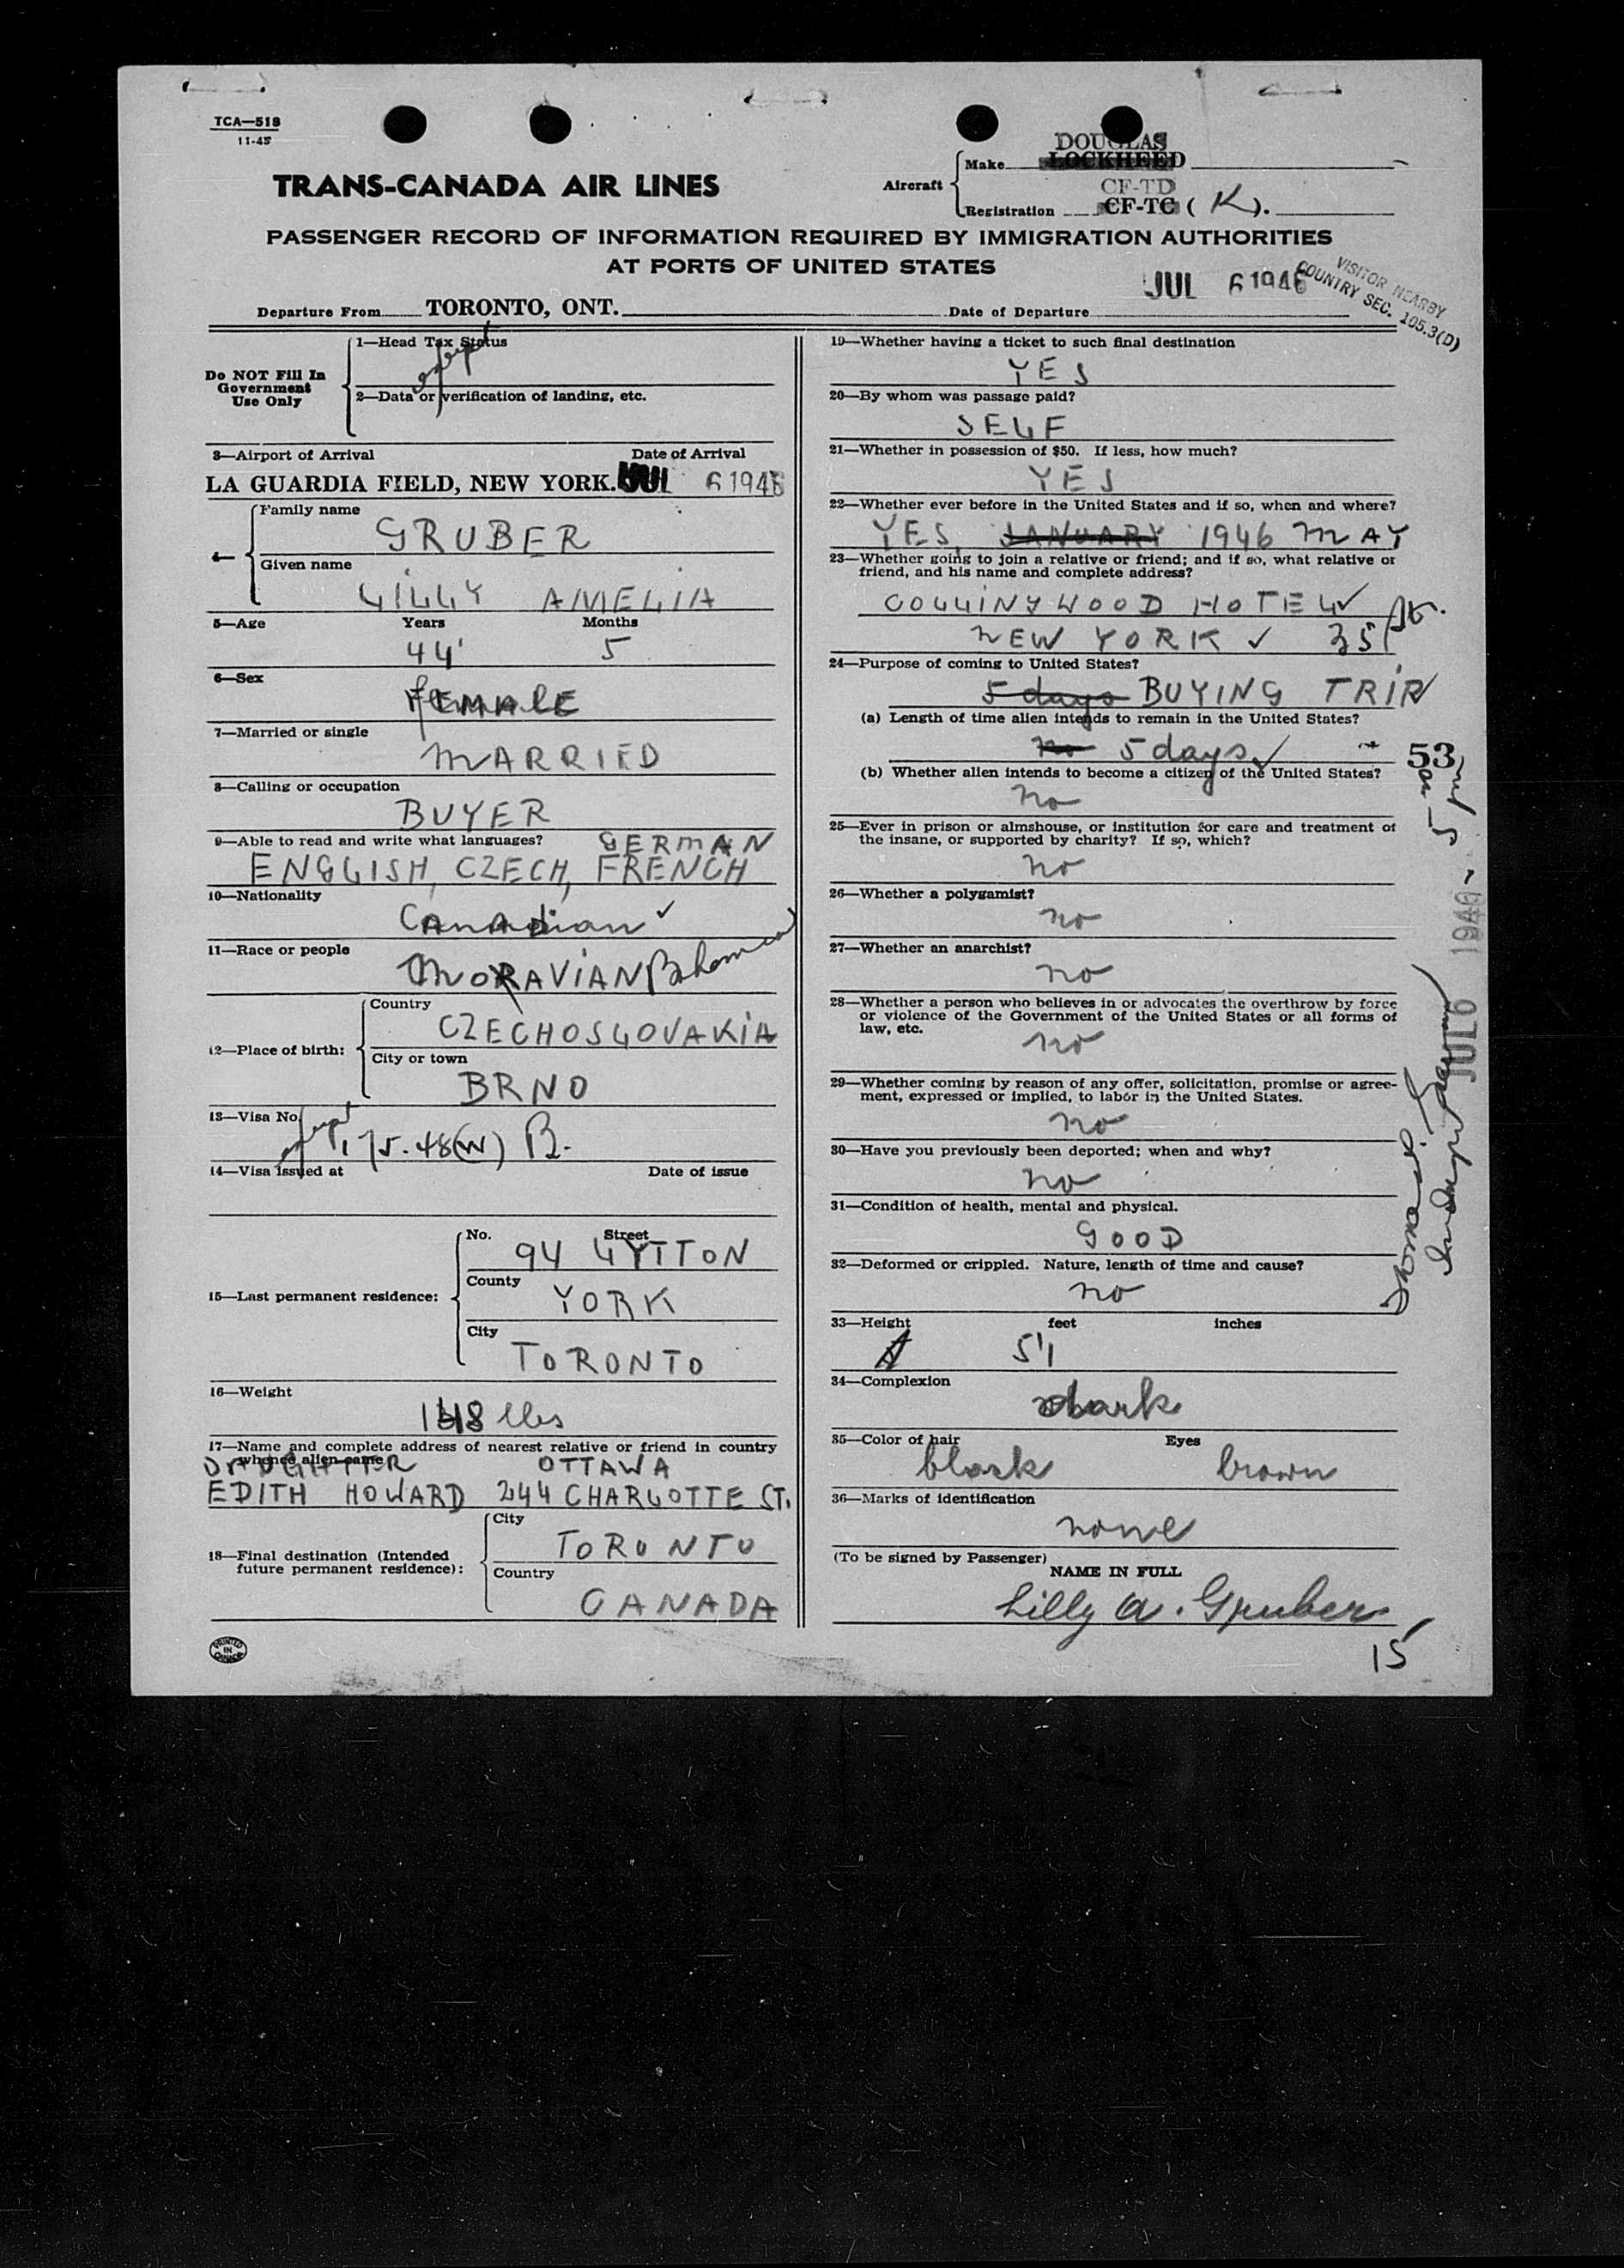 TCA—518
11-45
TRANS-CANADA AIR LINES
Aircraft
Make
DOUGLAS
LOCKHEED
Registration
CF-TD
CF-TC ( K ).
PASSENGER RECORD OF INFORMATION REQUIRED BY IMMIGRATION AUTHORITIES
AT PORTS OF UNITED STATES
JUL 6 1946
VISITOR NEARBY
COUNTRY SEC. 105.3(D)
Departure From TORONTO, ONT. Date of Departure
Do NOT Fill In
Government
Use Only
1—Head Tax Status
exempt
2—Data or verification of landing, etc.
3—Airport of Arrival Date of Arrival
LA GUARDIA FIELD, NEW YORK. JUL 6 1946
4—
Family name
GRUBER
Given name
LILLY AMELIA
5—Age Years Months
44 5
6—Sex
FEMALE
7—Married or single
MARRIED
8—Calling or occupation
BUYER
9—Able to read and write what languages? GERMAN
ENGLISH, CZECH, FRENCH
10—Nationality
Canadian ✓
11—Race or people
MORAVIAN Bohemian
12—Place of birth:
Country
CZECHOSLOVAKIA
City or town
BRNO
13—Visa No.
exempt 175.48(W) B.
14—Visa issued at Date of issue
15—Last permanent residence:
No. Street
94 LYTTON
County
YORK
City
TORONTO
16—Weight
148 lbs
17—Name and complete address of nearest relative or friend in country
whence alien came
DAUGHTER OTTAWA
EDITH HOWARD 244 CHARLOTTE ST.
18—Final destination (Intended
future permanent residence):
City
TORONTO
Country
CANADA
PRINTED
IN
CANADA
19—Whether having a ticket to such final destination
YES
20—By whom was passage paid?
SELF
21—Whether in possession of $50. If less, how much?
YES
22—Whether ever before in the United States and if so, when and where?
YES, JANUARY 1946 MAY
23—Whether going to join a relative or friend; and if so, what relative or
friend, and his name and complete address?
COLLINYWOOD HOTEL ✓
NEW YORK ✓ 35 St.
24—Purpose of coming to United States?
5 days BUYING TRIP
(a) Length of time alien intends to remain in the United States?
no 5 days ✓
53
(b) Whether alien intends to become a citizen of the United States?
no
25—Ever in prison or almshouse, or institution for care and treatment of
the insane, or supported by charity? If so, which?
no
26—Whether a polygamist?
no
27—Whether an anarchist?
no
28—Whether a person who believes in or advocates the overthrow by force
or violence of the Government of the United States or all forms of
law, etc.
no
29—Whether coming by reason of any offer, solicitation, promise or agree-
ment, expressed or implied, to labor in the United States.
no
30—Have you previously been deported; when and why?
no
31—Condition of health, mental and physical.
GOOD
32—Deformed or crippled. Nature, length of time and cause?
no
33—Height feet inches
5'1
34—Complexion
dark
35—Color of hair Eyes
black brown
36—Marks of identification
none
(To be signed by Passenger)
NAME IN FULL
Lilly A. Gruber
15
JUL 6 1946